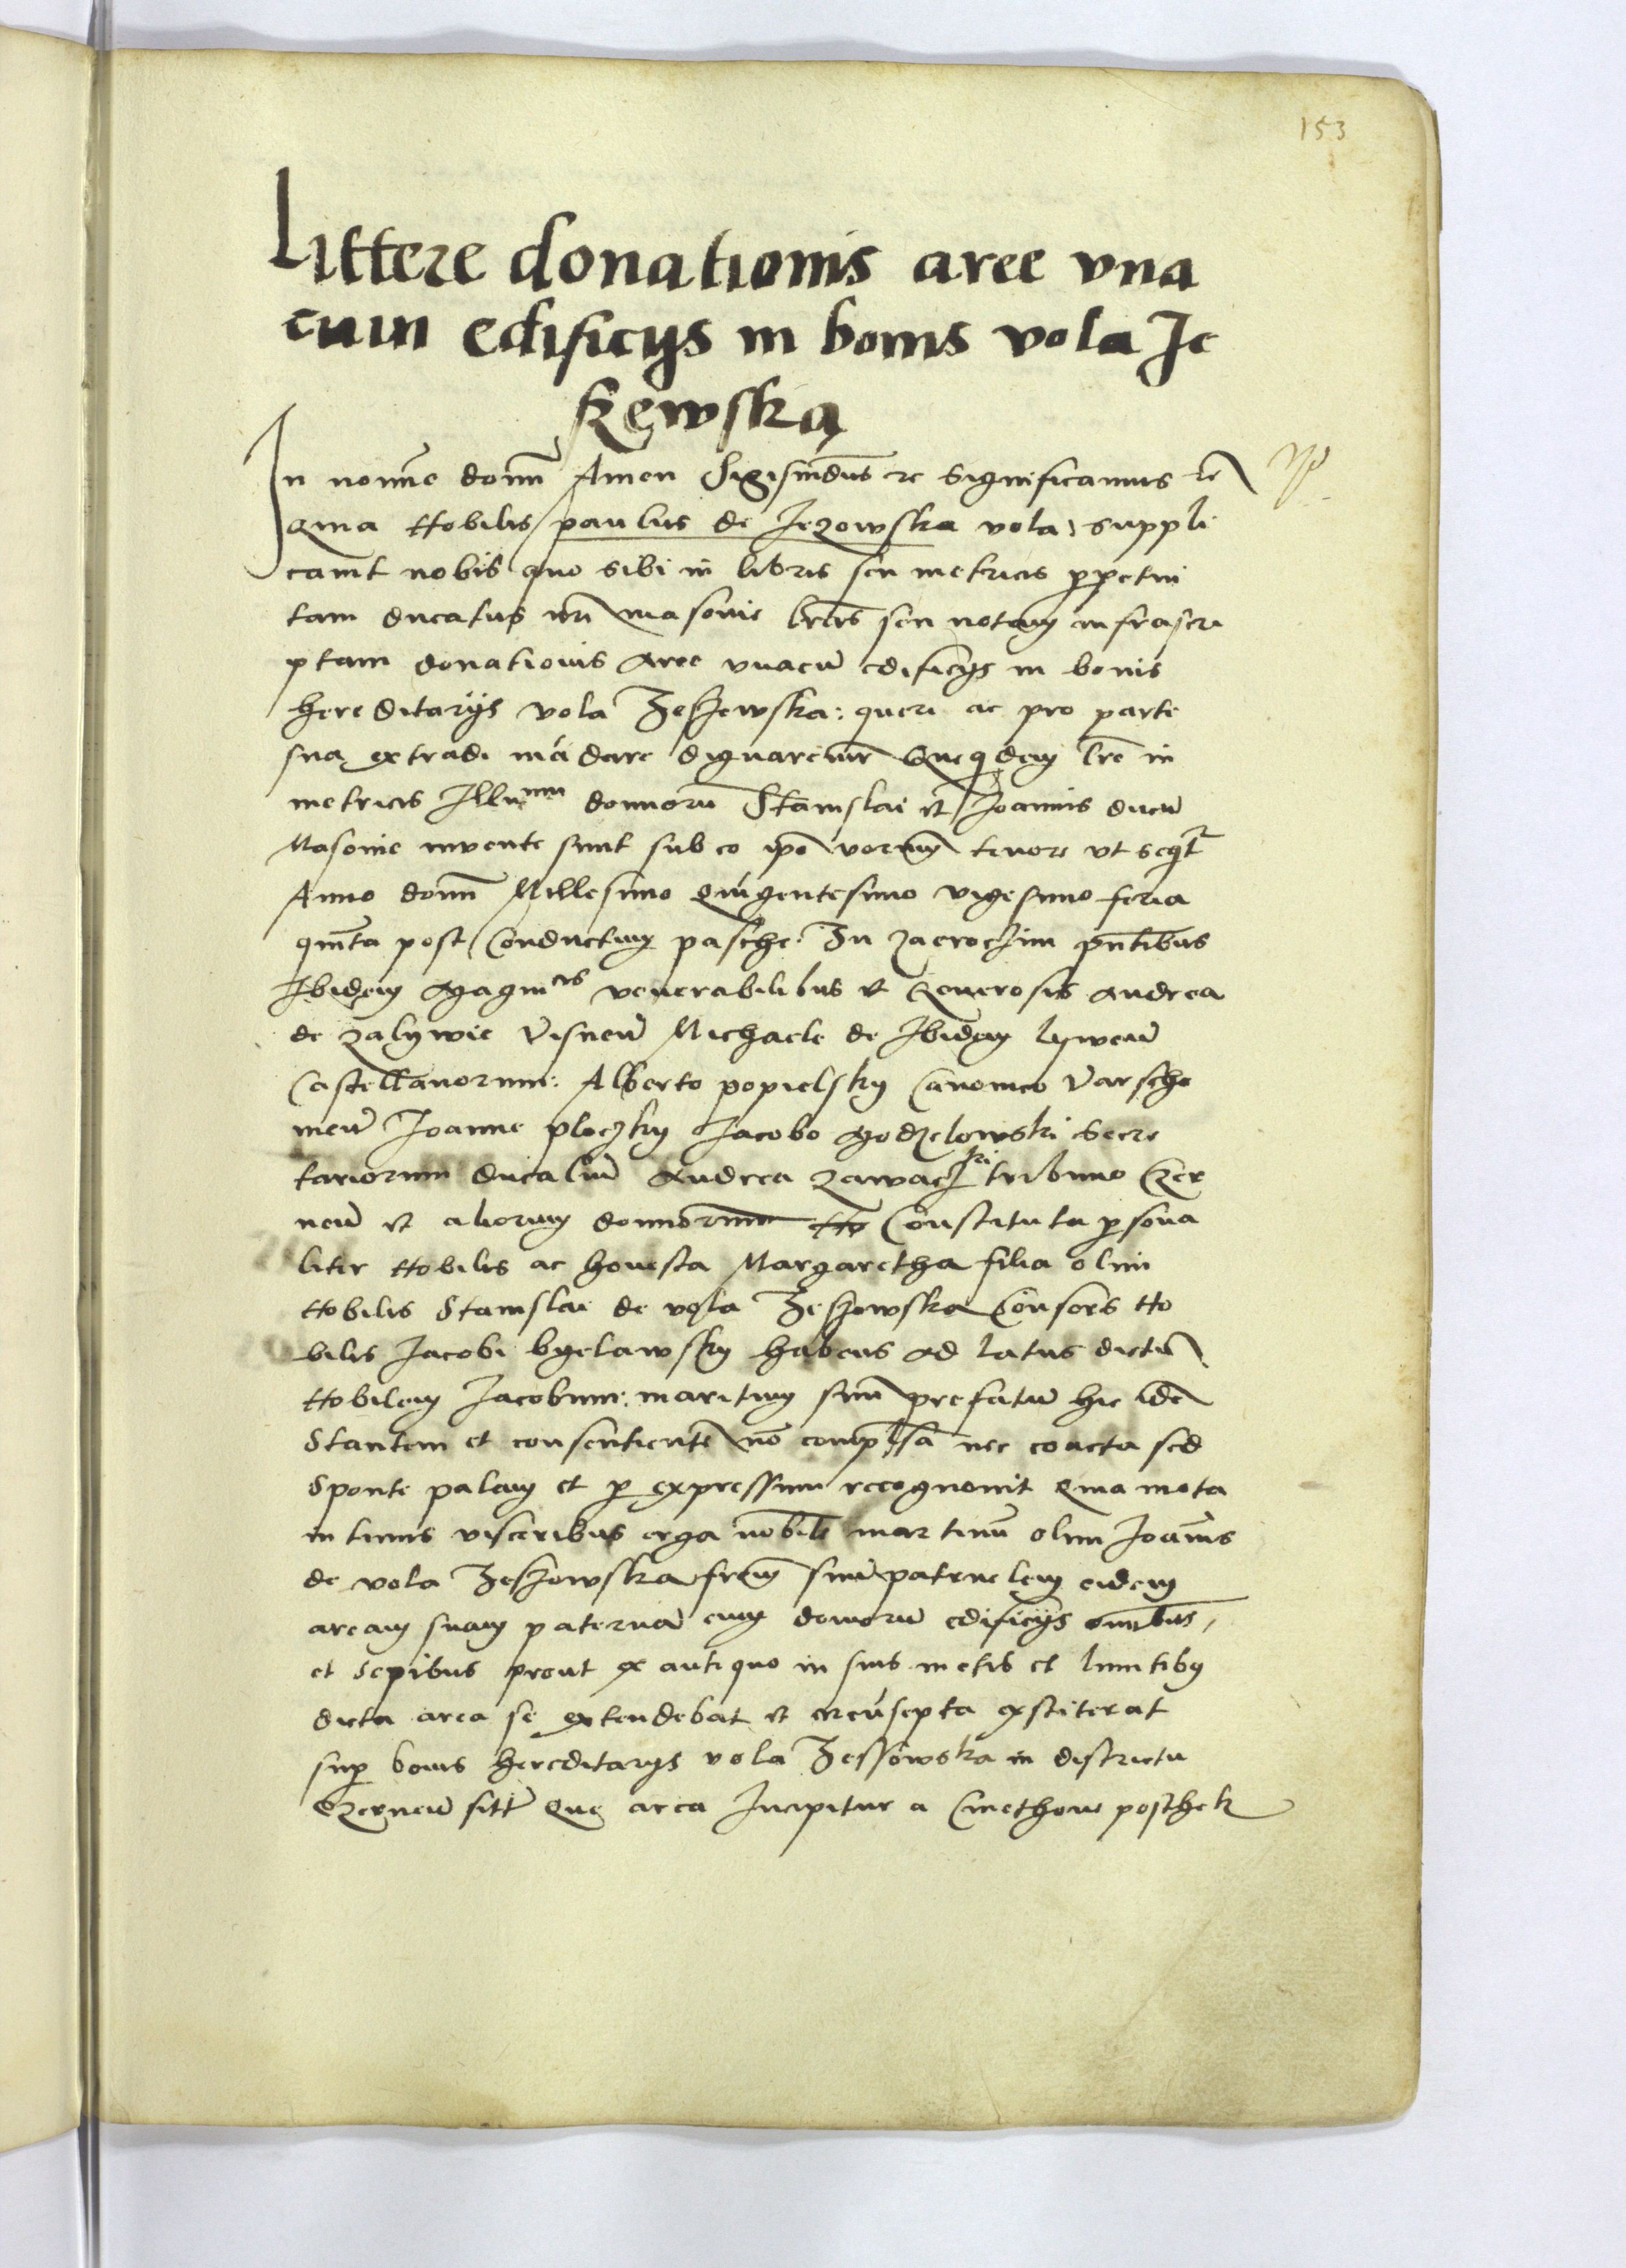 153
Littere donationis aree vna
cum edificijs in bonis vola Je
skewska
In nomine domi Amen Sigismdus rc Significamus rc
Quia Nobilis paulus de Jezowska vola suppli
cauit nobis quo sibi in libris seu metricis perpetui
tam ducatus nri Masouie lras seu notam infrascri
ptam donationis aree vnacu edificijs in bonis
hereditarijs vola Jeskewska: queri ac pro parte
sua extradi madare dignaremr Quequidem lre in
metricis Illu domoru Stanislai et Joannis ducu
Masouie invente sunt sub eo ipo verum tenore vt seqt
Anno domi Millesimo quigentesimo vigesimo feria
quinta post Conductum pasche: In zacroczim pntibus
Ibidem Magcis venerabilibus et Generosis Andrea
de zalywie visnen Michaele de Ibidem lywen
Castellanorum: Alberto popielsky Canonico Varsche
uien Joanne ploczky Jacobo Godzelowski Secre
tariorum ducaliu Andrea zawaczki tribuno Czer
nen et aliorum domorum Constituta persona
liter Nobilis ac honesta Margaretha filia olim
Nobilis Stanislai de vola Jeskowska Consors No
bilis Jacobi byelawsky habens ad latus dictu
Nobilem Jacobum: maritum suu prefatu hic ide
Stantem et consentiente no compulsa nec coacta sed
Sponte palam et per expressum recognouit Quia mota
intimis visceribus erga nobile martinu olim Joanis
de vola Jeskowska frem suu patruelem eidem
aream suam paterna cum domoru edificijs omibus,
et Sepibus prout ex antiquo in suis metis et limitibus
dicta area se extendebat et circusepta exstiterat
super bonis hereditarijs vola Jessowska in districtu
Czernen sitt Que area Incipitur a Cmethone posthek